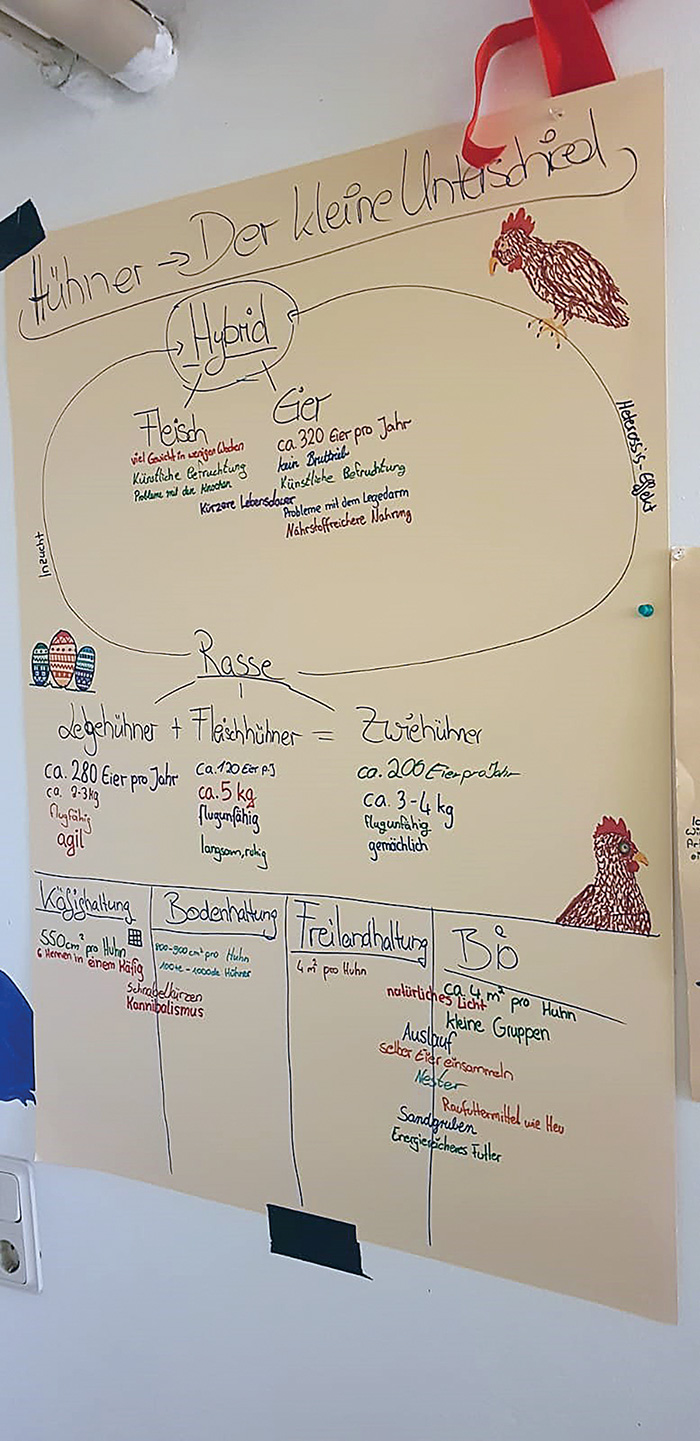 Hühner → Der kleine Unterschied
Hybrid
Fleisch
viel Gewicht in wenigen Wochen
Künstliche Befruchtung
Probleme mit den Knochen
Eier
ca. 320 Eier pro Jahr
kein Bruttrieb
Künstliche Befruchtung
Probleme mit dem Legedarm
Nährstoffreichere Nahrung
Kürzere Lebensdauer
Inzucht
Heterosis-Effekt
Rasse
Legehühner + Fleischhühner = Zwiehühner
ca. 280 Eier pro Jahr
ca. 2-3 kg
flugfähig
agil
ca. 120 Eier p.J
ca. 5 kg
flugunfähig
langsam, ruhig
ca. 200 Eier pro Jahr
ca. 3-4 kg
flugunfähig
gemächlich
Käfighaltung
550 cm² pro Huhn
6 Hennen in einem Käfig
Bodenhaltung
800-900 cm² pro Huhn
100te - 1000de Hühner
Schnabelkürzen
Kannibalismus
Freilandhaltung
4 m² pro Huhn
Bio
ca. 4 m² pro Huhn
kleine Gruppen
natürliches Licht
Auslauf
selber Eier einsammeln
Nester
Raufuttermittel wie Heu
Sandgruben
Energiereicheres Futter